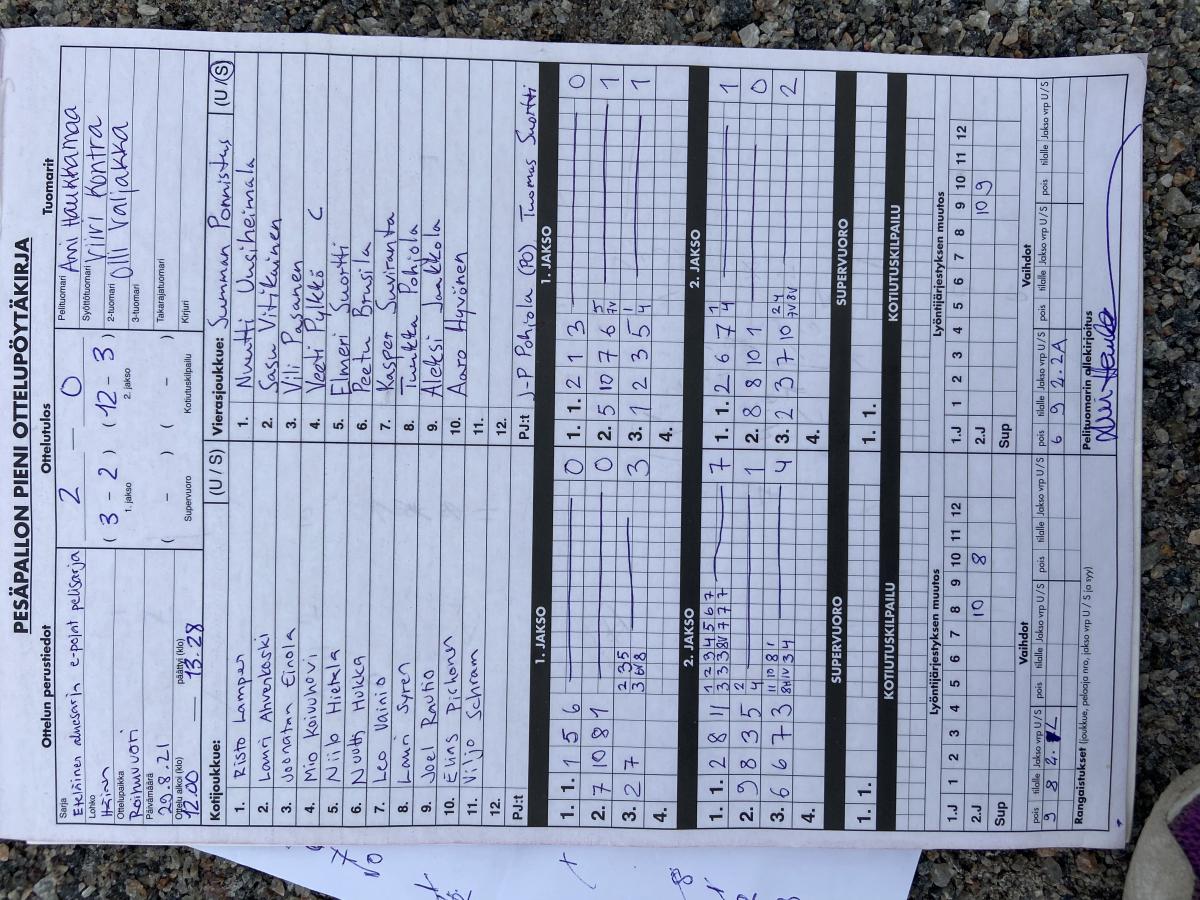 PESÄPALLON PIENI OTTELUPÖYTÄKIRJA
Ottelun perustiedot
Sarja
Eteläinen aluesarja e-pojat pelisarja
Lohko
Itäinen
Ottelupaikka
Roihuvuori
Päivämäärä
29.8.21
Ottelu alkoi (klo) päättyi (klo)
12.00 13.28
Ottelutulos
2 — 0
( 3 - 2 ) ( 12 - 3 )
1. jakso 2. jakso
( - ) ( - )
Supervuoro Kotiutuskilpailu
Tuomarit
Pelituomari Anni Haukkamaa
Syöttötuomari Viivi Kontra
2-tuomari Olli Valjakka
3-tuomari
Takarajatuomari
Kirjuri
Kotijoukkue: (U / S)
1. Risto Lamper
2. Lauri Ahvenkoski
3. Joonatan Einola
4. Mio Koivuhovi
5. Niilo Hietala
6. Nuutti Hukka
7. Leo Vainio
8. Lauri Syren
9. Joel Rautio
10. Elias Pichonen
11. Viljo Schram
12.
PJ:t
Vierasjoukkue: Summan Ponnistus (U / S)
1. Nuutti Uusiheimala
2. Sasu Vitikainen
3. Vili Pasanen
4. Veeti Pylkkö C
5. Elmeri Suortti
6. Peetu Brusila
7. Kasper Suviranta
8. Tuukka Pohjola
9. Aleksi Jaakkola
10. Aaro Hyvönen
11.
12.
PJ:t J-P Pohjola (PO) Tuomas Suortti
1. JAKSO
1. 1. 1 5 6 0
2. 7 10 8 1 0
3. 2 7 2 3 5 3 6V 8 3
4.
1. JAKSO
1. 1. 2 1 3 0
2. 5 10 7 6 5 7V 1
3. 1 2 3 5 1 4 1
4.
2. JAKSO
1. 1. 2 8 11 1 2 3 4 5 6 7 3 3 3 8V 7 7 7 7
2. 9 8 3 5 2 4 1
3. 6 6 7 3 11 10 8 1 8 4 4
4.
2. JAKSO
1. 1. 2 6 7 1 4 1
2. 8 8 10 1 0
3. 2 3 7 10 2 4 7V 8V 2
4.
SUPERVUORO
1. 1.
SUPERVUORO
1. 1.
KOTIUTUSKILPAILU
KOTIUTUSKILPAILU
Lyöntijärjestyksen muutos
1.J 1 2 3 4 5 6 7 8 9 10 11 12
2.J 10 8
Sup
Lyöntijärjestyksen muutos
1.J 1 2 3 4 5 6 7 8 9 10 11 12
2.J 10 9
Sup
Vaihdot
pois tilalle Jakso vrp U / S pois tilalle Jakso vrp U / S pois tilalle Jakso vrp U / S
9 8 2.
Vaihdot
pois tilalle Jakso vrp U / S pois tilalle Jakso vrp U / S pois tilalle Jakso vrp U / S
6 9 2.2A
Rangaistukset (joukkue, pelaaja nro, jakso vrp U / S ja syy)
Pelituomarin allekirjoitus